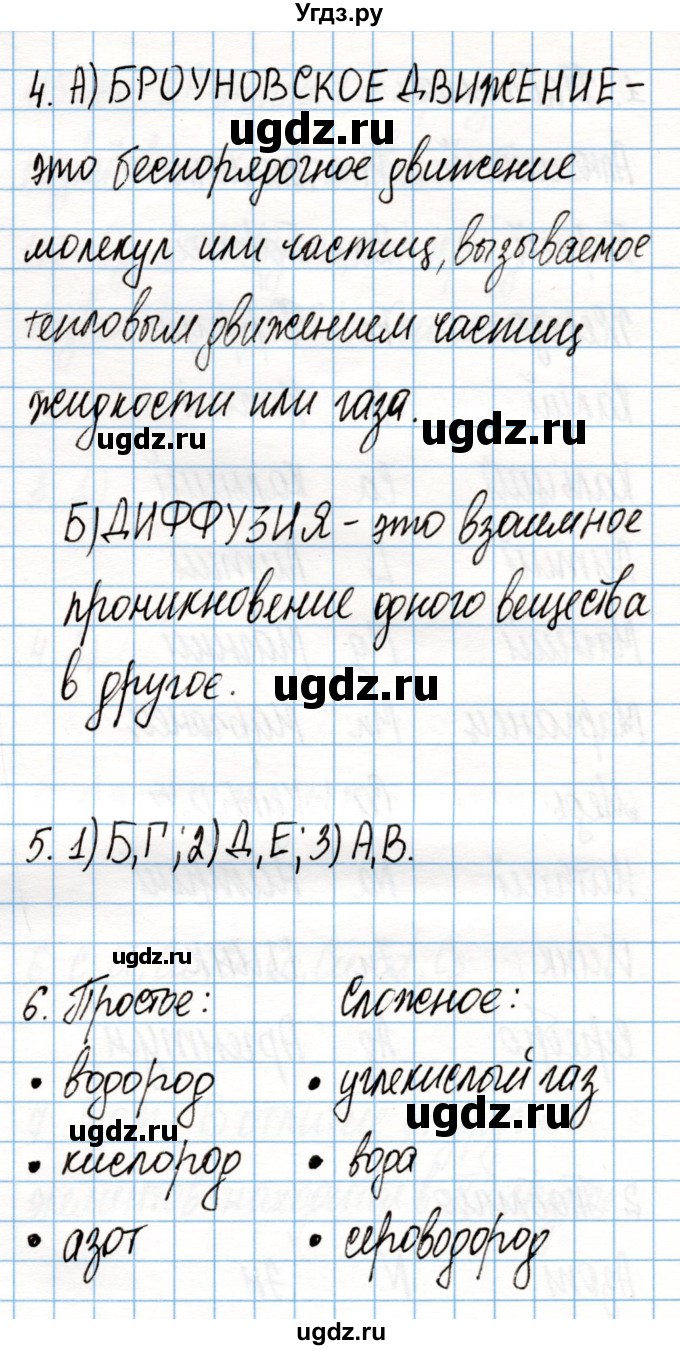 Угдз.ру
4. А) БРОУНОВСКОЕ ДВИЖЕНИЕ –
ugdz.ru
это беспорядочное движение
молекул или частиц, вызываемое
тепловым движением частиц
жидкости или газа.
ugdz.ru
ugdz.ru
Б) ДИФФУЗИЯ – это взаимное
проникновение одного вещества
в другое.
ugdz.ru
5. 1) Б, Г; 2) Д, Е; 3) А, В.
ugdz.ru
6. Простые: Сложное:
• водород • углекислый газ
ugdz.ru
ugdz.ru
• кислород • вода
• азот • сероводород
ugdz.ru